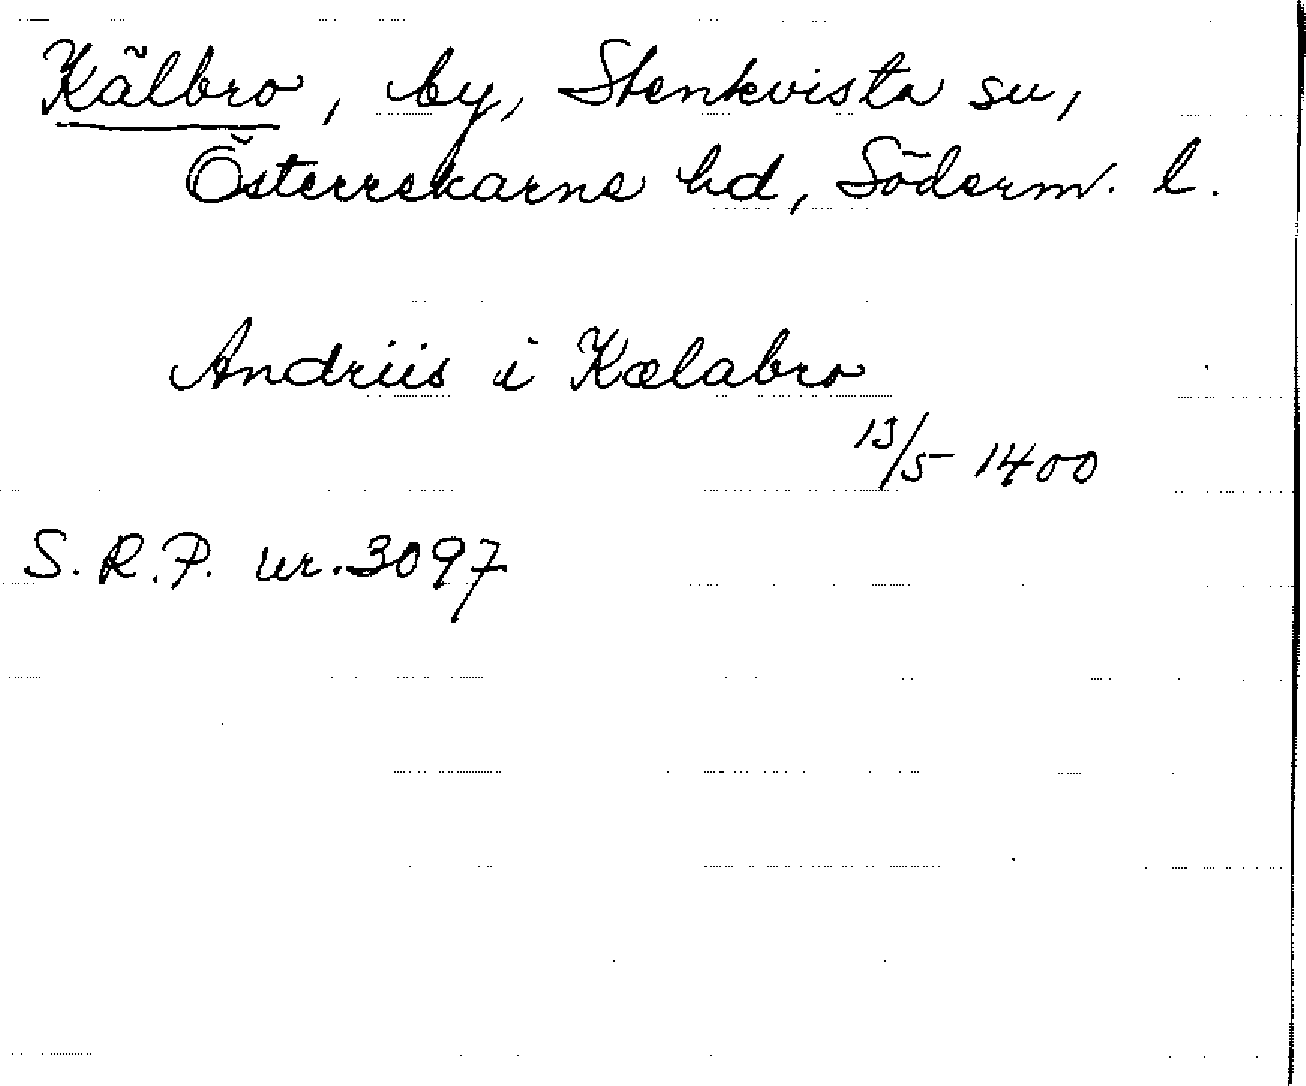 Kälbro, by, Stenkvista sn,
Österrekarne hd, Söderm. l.
Andriis i Kælabro
13/5 1400
S.R.P. nr. 3097